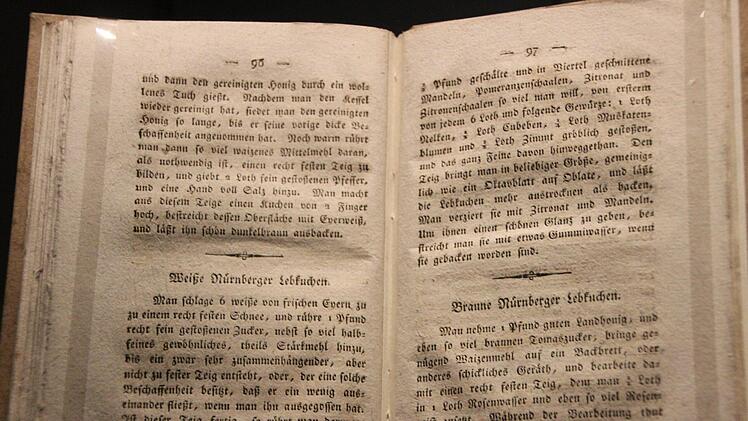 — 96 —
und dann den gereinigten Honig durch ein wol-
lenes Tuch gießt. Nachdem man den Kessel
wieder gereinigt hat, siedet man den gereinigten
Honig so lange, bis er seine vorige dicke Be-
schaffenheit angenommen hat. Noch warm rührt
man dann so viel waizenes Mittelmehl daran,
als nothwendig ist, einen recht festen Teig zu
bilden, und giebt 2 Loth fein gestoßenen Pfeffer,
und eine Hand voll Salz hinzu. Man macht
aus diesem Teige einen Kuchen von 2 Finger
hoch, bestreicht dessen Oberfläche mit Eyerweiß,
und läßt ihn schön dunkelbraun ausbacken.
Weiße Nürnberger Lebkuchen.
Man schlage 6 weiße von frischen Eyern zu
zu einem recht festen Schnee, und rühre 1 Pfund
recht fein gestoßenen Zucker, nebst so viel halb-
feines gewöhnliches, theils Stärkmehl hinzu,
bis ein zwar sehr zusammenhängender, aber
nicht zu fester Teig entsteht, oder, der eine solche
Beschaffenheit besitzt, daß er ein wenig aus-
einander fließt, wenn man ihn ausgegossen hat.
Ist dieser Teig fertig, so rührt man
— 97 —
Pfund geschälte und in Viertel geschnittene
Mandeln, Pomeranzenschaalen, Zitronat und
Zitronenschaalen so viel man will, von ersterm
von jedem 6 Loth und folgende Gewürze: 1 Loth
Nelken, Loth Cubeben, Loth Muskaten-
blumen und Loth Zimmt gröblich gestoßen,
und das ganz Feine davon hinweggethan. Den
Teig bringt man in beliebiger Größe, gemeinig-
lich wie ein Oktavblatt auf Oblate, und läßt
die Lebkuchen mehr austrocknen als backen.
Man verziert sie mit Zitronat und Mandeln.
Um ihnen einen schönen Glanz zu geben, be-
streicht man sie mit etwas Gummiwasser, wenn
sie gebacken worden sind.
Braune Nürnberger Lebkuchen.
Man nehme 1 Pfund guten Landhonig, und
eben so viel braunen Tomaszucker; bringe ge-
nügend Waizenmehl auf ein Backbrett, oder
anderes schickliches Geräth, und bearbeite da-
mit einen recht festen Teig, dem man Loth
in 1 Loth Rosenwasser und eben so viel Rosen-
Während der Bearbeitung thut